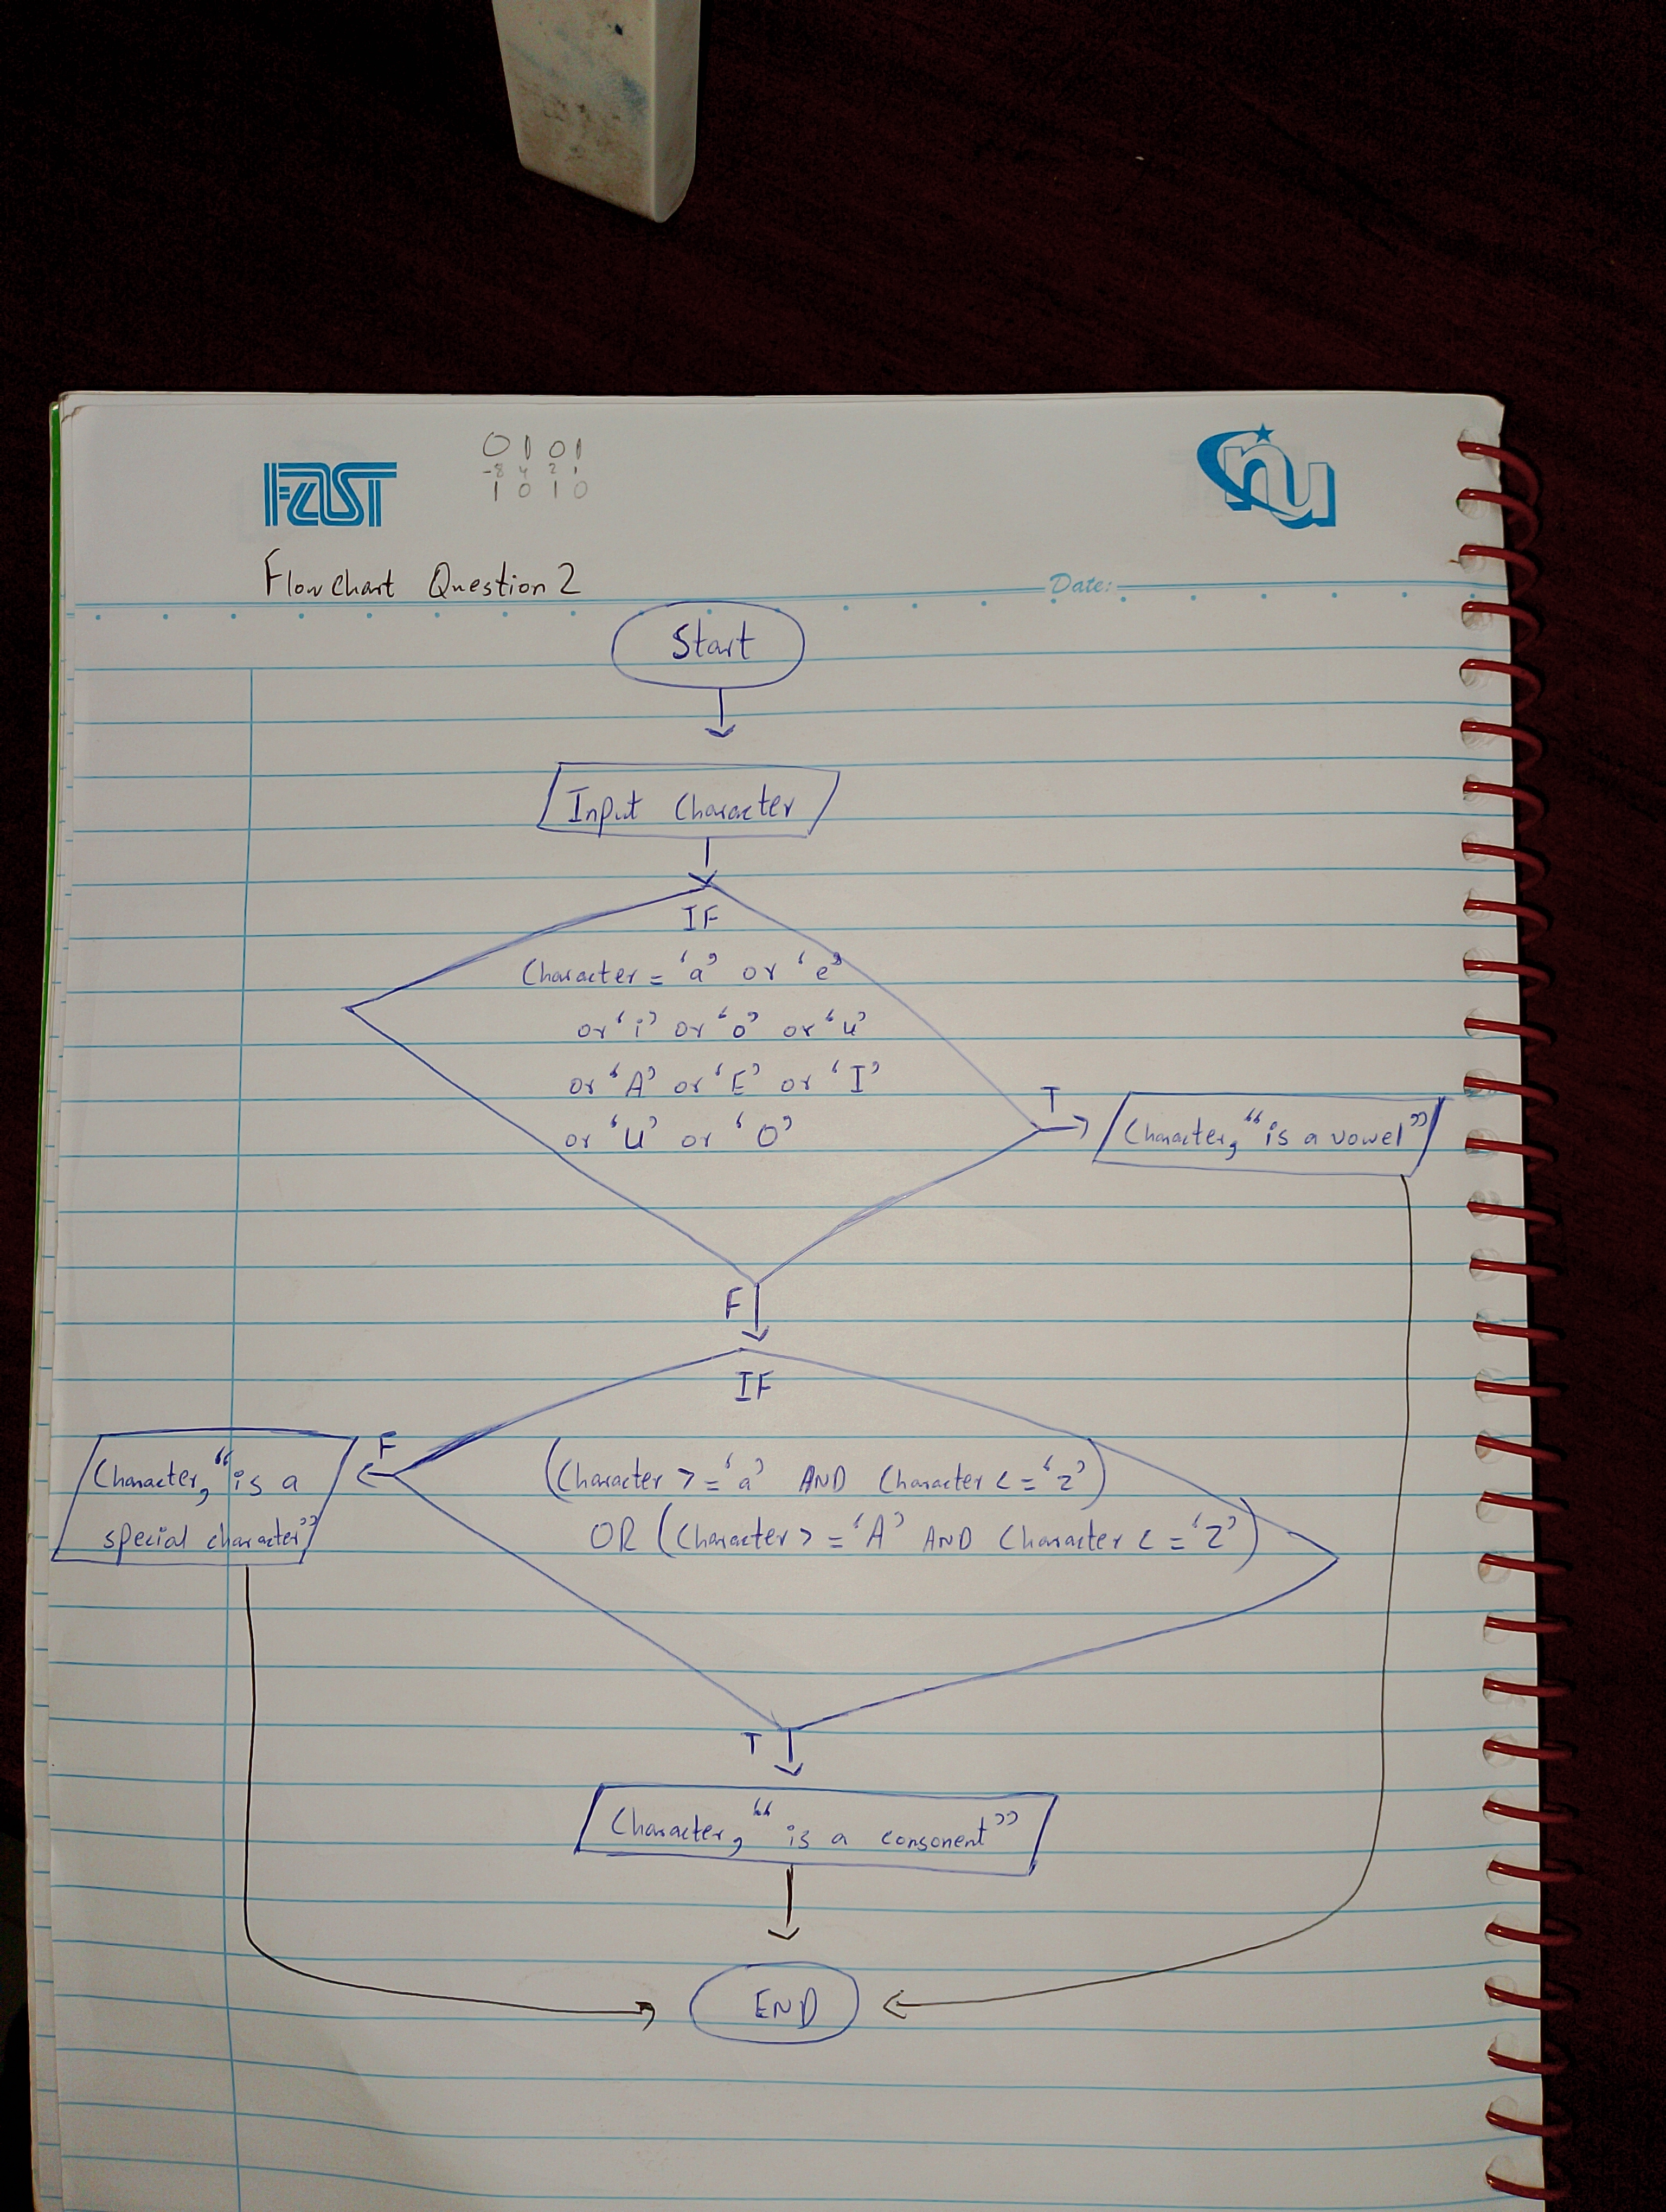 0 1 0 1
-8 4 2 1
1 0 1 0
FAST
nu
Flow Chart Question 2
Date:
Start
Input Character
IF
Character = 'a' or 'e'
or 'i' or 'o' or 'u'
or 'A' or 'E' or 'I'
or 'U' or 'O'
T
Character, "is a vowel"
F
IF
(Character >= 'a' AND Character <= 'z')
OR (Character >= 'A' AND Character <= 'Z')
F
Character, "is a
special character"
T
Character, "is a consonent"
END